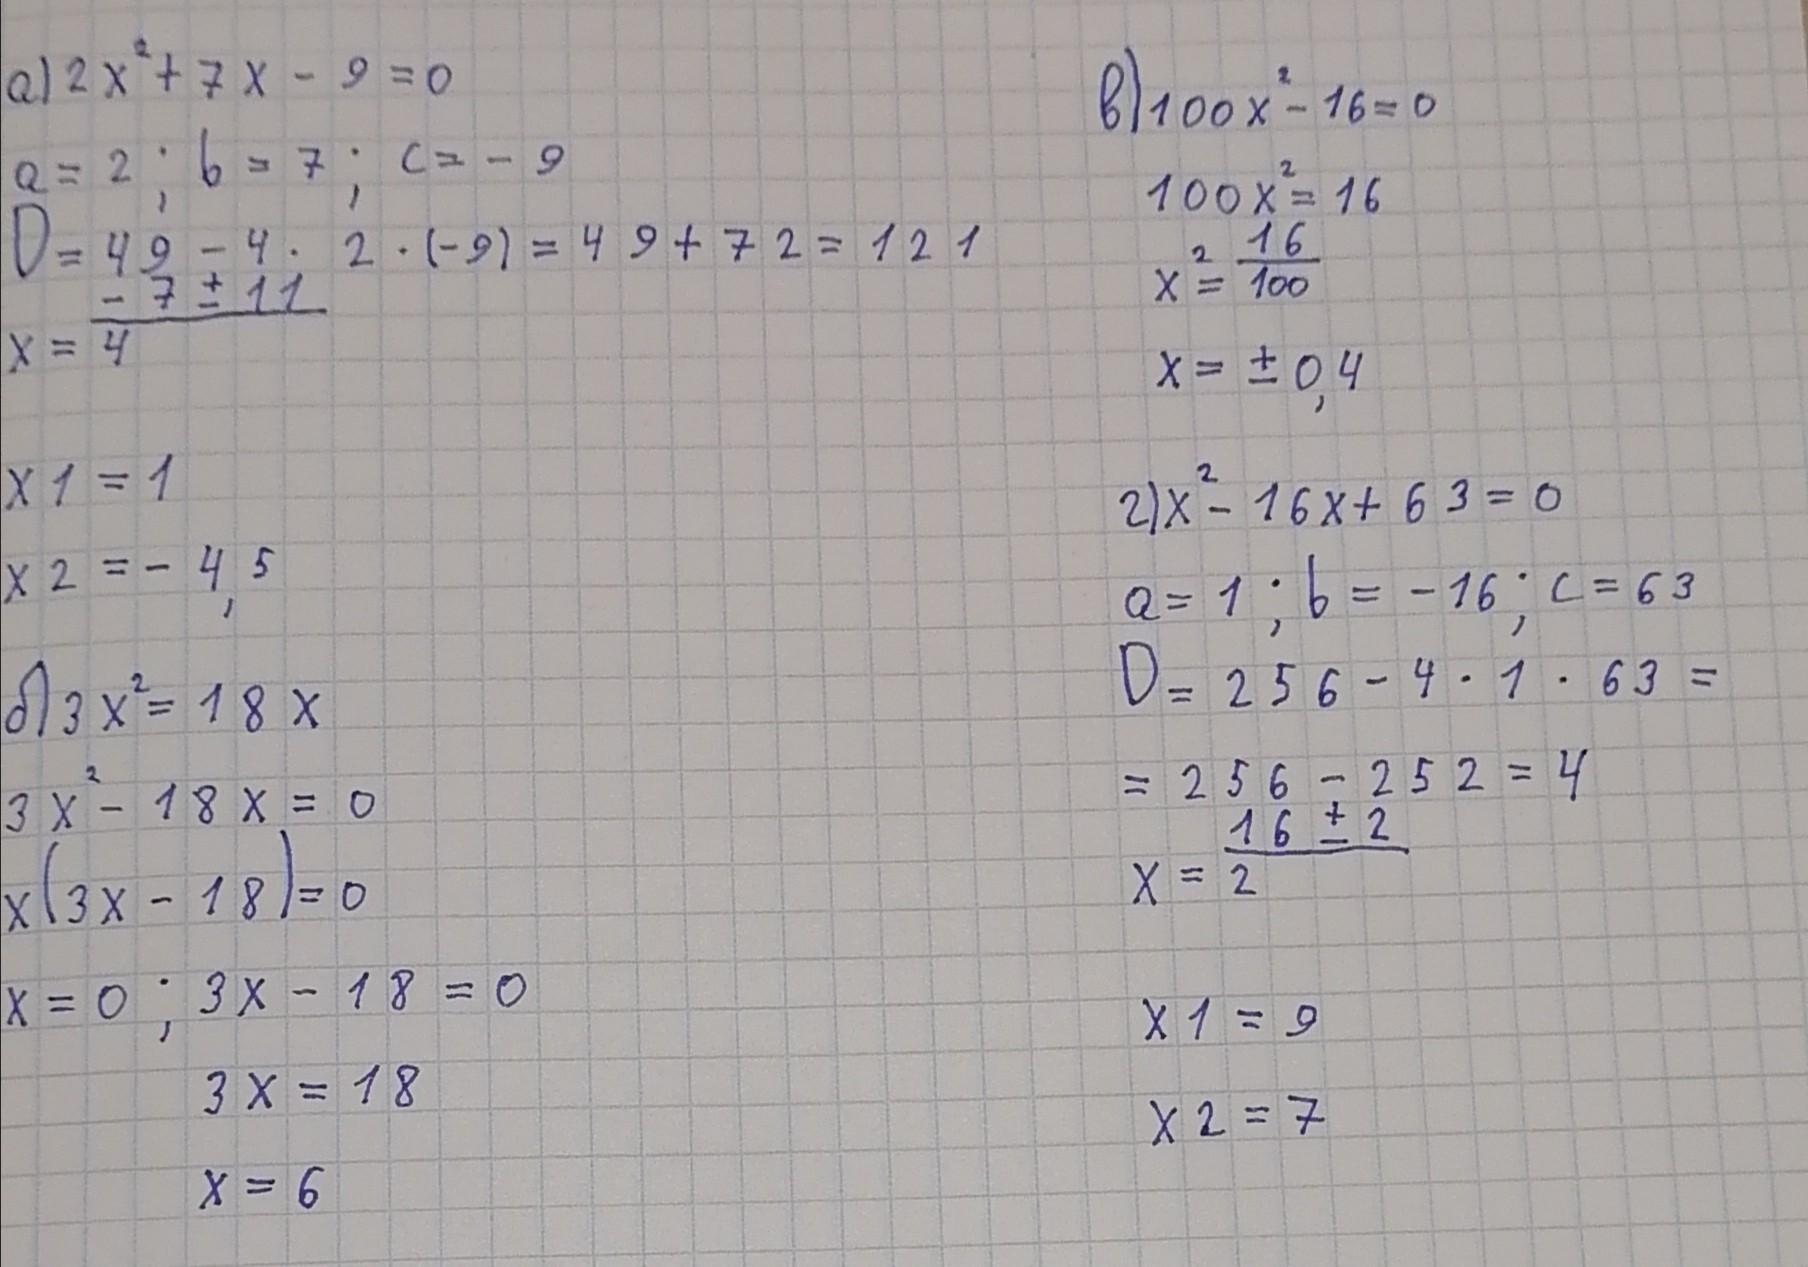 а) 2x² + 7x - 9 = 0
a = 2; b = 7; c = - 9
D = 49 - 4 · 2 · (-9) = 49 + 72 = 121
x = \frac{-7 ± 11}{4}
x1 = 1
x2 = - 4,5
б) 3x² = 18x
3x² - 18x = 0
x(3x - 18) = 0
x = 0; 3x - 18 = 0
3x = 18
x = 6
в) 100x² - 16 = 0
100x² = 16
x² = \frac{16}{100}
x = ± 0,4
г) x² - 16x + 63 = 0
a = 1; b = -16; c = 63
D = 256 - 4 · 1 · 63 =
= 256 - 252 = 4
x = \frac{16 ± 2}{2}
x1 = 9
x2 = 7